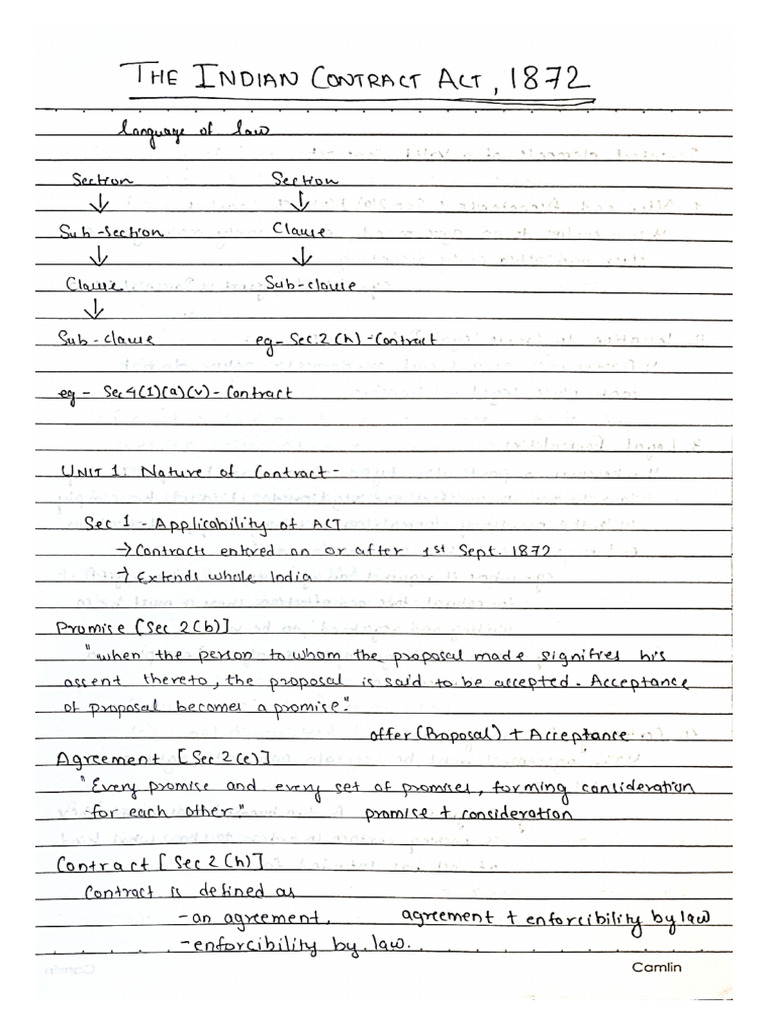 THE INDIAN CONTRACT ACT, 1872
language of law
Section Section
↓ ↓
Sub-section Clause
↓ ↓
Clause Sub-clause
↓
Sub-clause eg- Sec.2(h)-Contract
eg- Sec4(1)(a)(v)-Contract
UNIT 1. Nature of Contract-
Sec 1 - Applicability of ACT
→ Contracts entered on or after 1st Sept. 1872
→ Extends whole India
Promise [Sec 2(b)]
"when the person to whom the proposal made signifies his
assent thereto, the proposal is said to be accepted. Acceptance
of proposal becomes a promise."
offer (Proposal) + Acceptance
Agreement [Sec 2(e)]
"Every promise and every set of promises, forming consideration
for each other" promise + consideration
Contract [Sec 2(h)]
Contract is defined as
- an agreement. agreement + enforcibility by law
- enforcibility by law.
Camlin